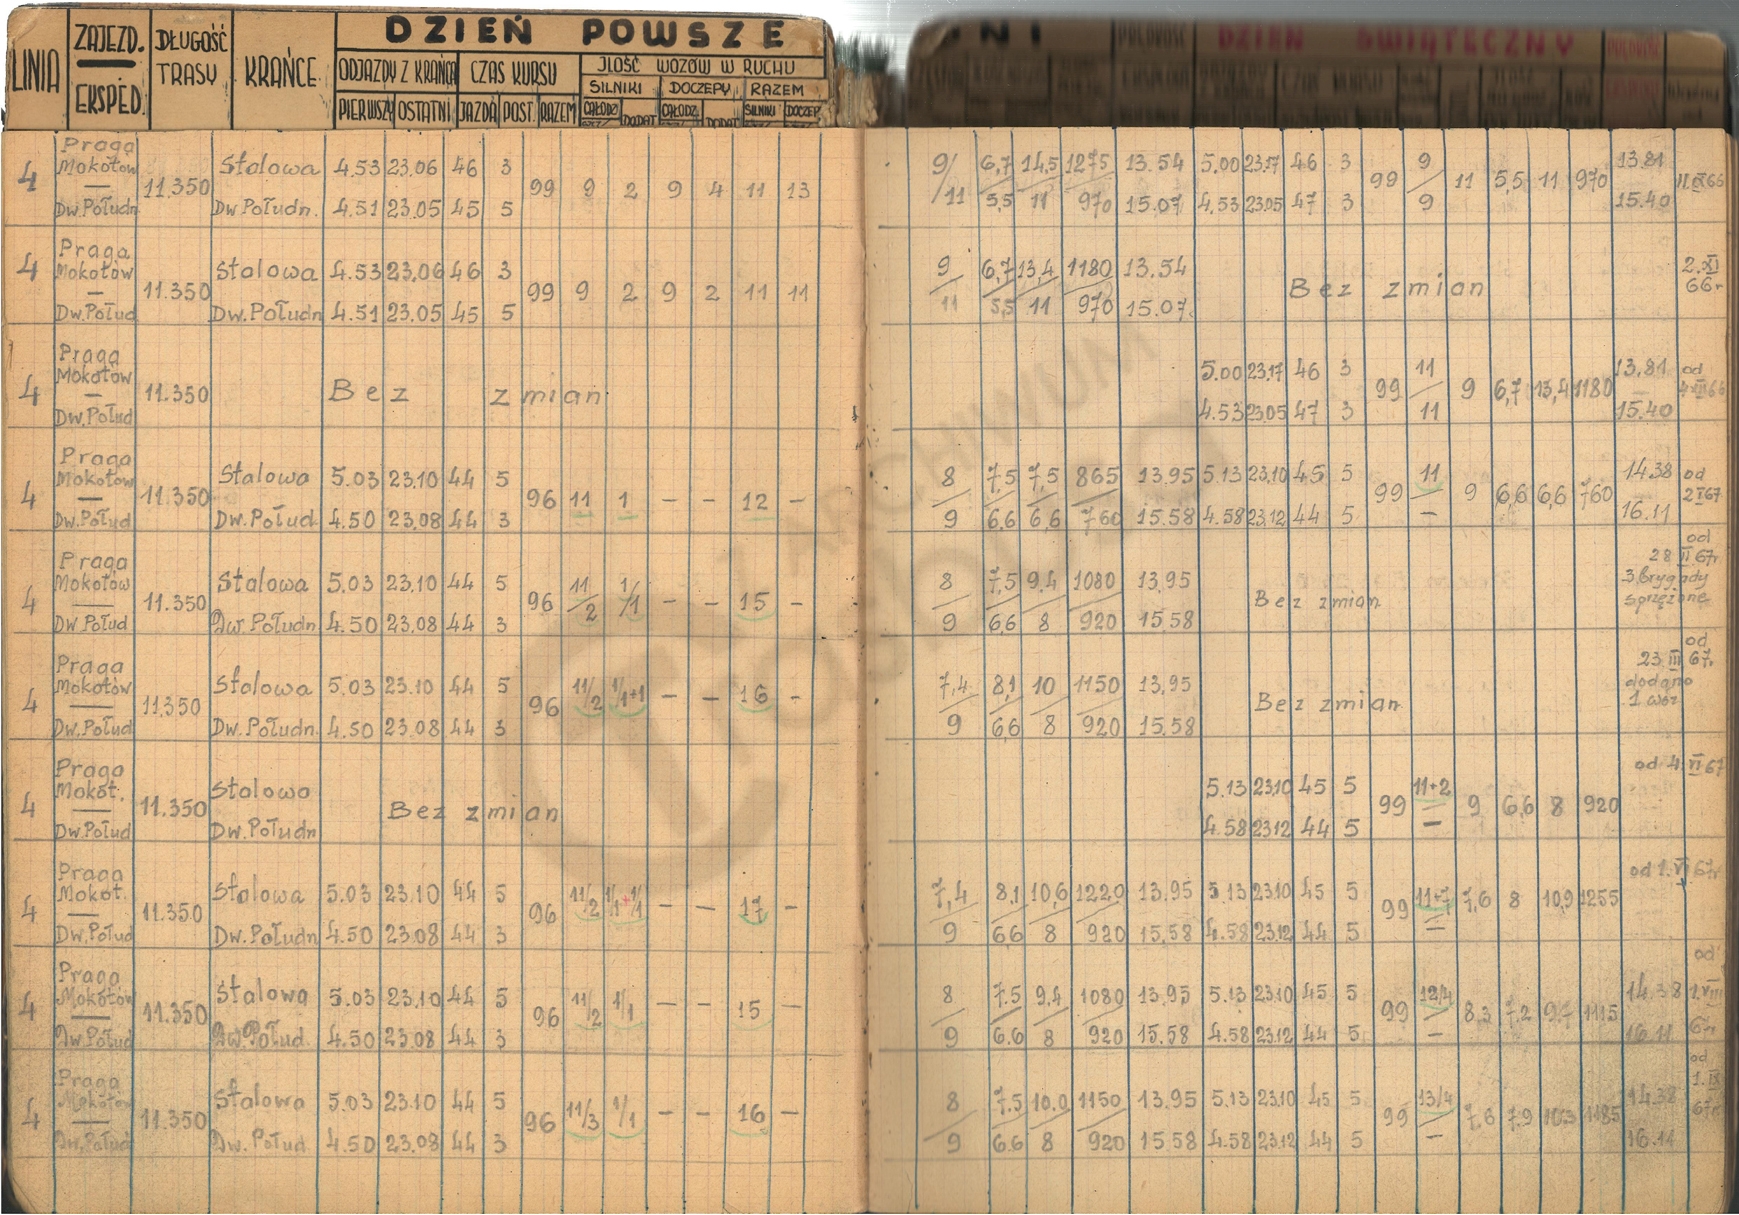 DZIEŃ POWSZE
NI
DZIEŃ ŚWIĄTECZNY
LINIA ZAJEZD. EKSPED. DŁUGOŚĆ TRASY KRAŃCE ODJAZDY Z KRAŃCA CZAS KURSU ILOŚĆ WOZÓW W RUCHU
SILNIKI DOCZEPY RAZEM
PIERWSZY OSTATNI JAZDA POST. RAZEM CAŁODZ. DODAT CAŁODZ. DODAT SILNIKI DOCZEP
Praga
Mokotów Stalowa 4.53 23.06 46 3 9/ 6,7 14,5 1275 13.54 5.00 23.17 46 3 9 13.81
4 — 11.350 99 9 2 9 4 11 13 99 11 5,5 11 970 11.IX66
Dw. Połudn. Dw Połudn. 4.51 23.05 45 5 /11 5,5 11 970 15.07 4.53 23.05 47 3 9 15.40
Praga
4 Mokotów Stalowa 4.53 23.06 46 3 9 6,7 13,4 1180 13.54 2.XI
— 11.350 99 9 2 9 2 11 11 Bez zmian 66r
Dw. Połud Dw. Połudn 4.51 23.05 45 5 11 5,5 11 970 15.07.
Praga
Mokotów 5.00 23.17 46 3 11 13.81 od
4 — 11.350 Bez zmian 99 9 6,7 13,4 1180 4.XII66
Dw. Połud 4.53 23.05 47 3 11 15.40
Praga
Mokotów Stalowa 5.03 23.10 44 5 8 7,5 7,5 865 13.95 5.13 23.10 45 5 11 14.38 od
4 — 11.350 96 11 1 – – 12 – 99 9 6,6 6,6 760 2I67
Dw. Połud Dw. Połud. 4.50 23.08 44 3 9 6,6 6,6 760 15.58 4.58 23.12 44 5 – 16.11
od
Praga 28 II 67r
Mokotów Stalowa 5.03 23.10 44 5 8 7,5 9,4 1080 13,95 3 brygady
4 — 11.350 96 11/2 1/1 – – 15 – Bez zmian sprzężone
Dw Połud Dw. Połudn 4.50 23.08 44 3 9 6,6 8 920 15,58
od
Praga 23 III 67.
Mokotów Stalowa 5.03 23.10 44 5 7,4 8,1 10 1150 13,95 dodano
4 — 11.350 96 11/2 1/1+1 – – 16 – Bez zmian 1 wóz
Dw. Połud Dw. Połudn. 4.50 23.08 44 3 9 6,6 8 920 15.58
Praga od 4.VI 67
Mokot. Stalowa 5.13 23.10 45 5 11+2
4 — 11.350 Bez zmian 99 9 6,6 8 920
Dw. Połud Dw. Połudn 4.58 23.12 44 5 –
Praga od 1.VI 67r
Mokot. Stalowa 5.03 23.10 44 5 7,4 8,1 10,6 1220 13,95 5.13 23.10 45 5
4 — 11.350 96 11/2 1/1+1/1 – – 17 – 99 11+7 7,6 8 10,9 1255
Dw. Połud Dw. Połudn 4.50 23.08 44 3 9 6,6 8 920 15,58 4.58 23.12 44 5 –
Praga od
Mokotów Stalowa 5.03 23.10 44 5 8 7.5 9,4 1080 13,95 5.13 23.10 45 5 12/4 14.38 1.VIII
4 — 11.350 96 11/2 1/1 – – 15 – 99 8,3 7,2 9,7 1115
Dw. Połud Dw. Połud. 4.50 23.08 44 3 9 6.6 8 920 15.58 4.58 23.12 44 5 – 16.11 67r
Praga od
Mokotów Stalowa 5.03 23.10 44 5 8 7.5 10.0 1150 13.95 5.13 23.10 45 5 13/4 14.38 1.IX
4 — 11.350 96 11/3 1/1 – – 16 – 99 7,8 7,9 10,3 1185 67r
Dw. Połud Dw. Połud 4.50 23.08 44 3 9 6.6 8 920 15.58 4.58 23.12 44 5 – 16.11
ARCHIWUM